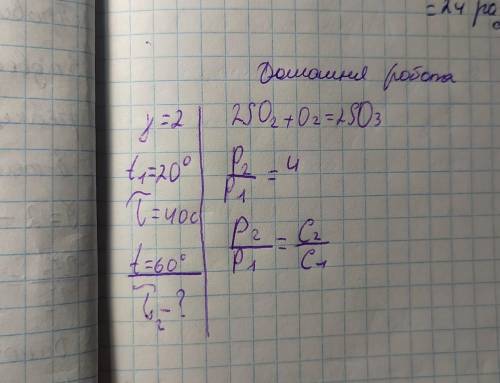 = 24 ра
Домашня робота
γ = 2
t₁ = 20°
τ = 40с
t = 60°
τ₂ - ?
2SO₂ + O₂ = 2SO₃
P₂/P₁ = 4
P₂/P₁ = C₂/C₁